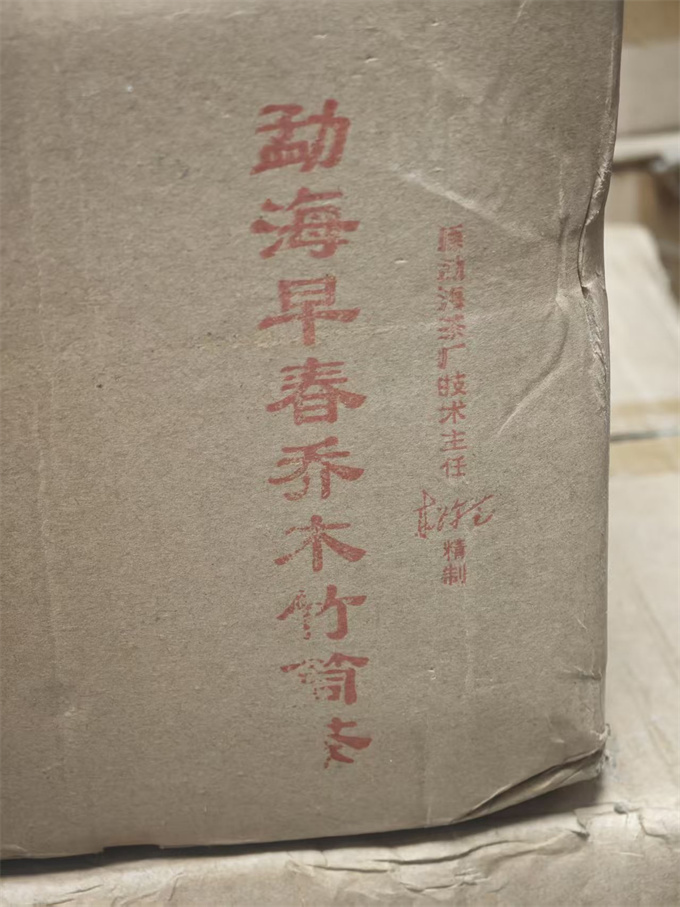 原勐海茶厂技术主任
精制
勐海早春乔木竹筒